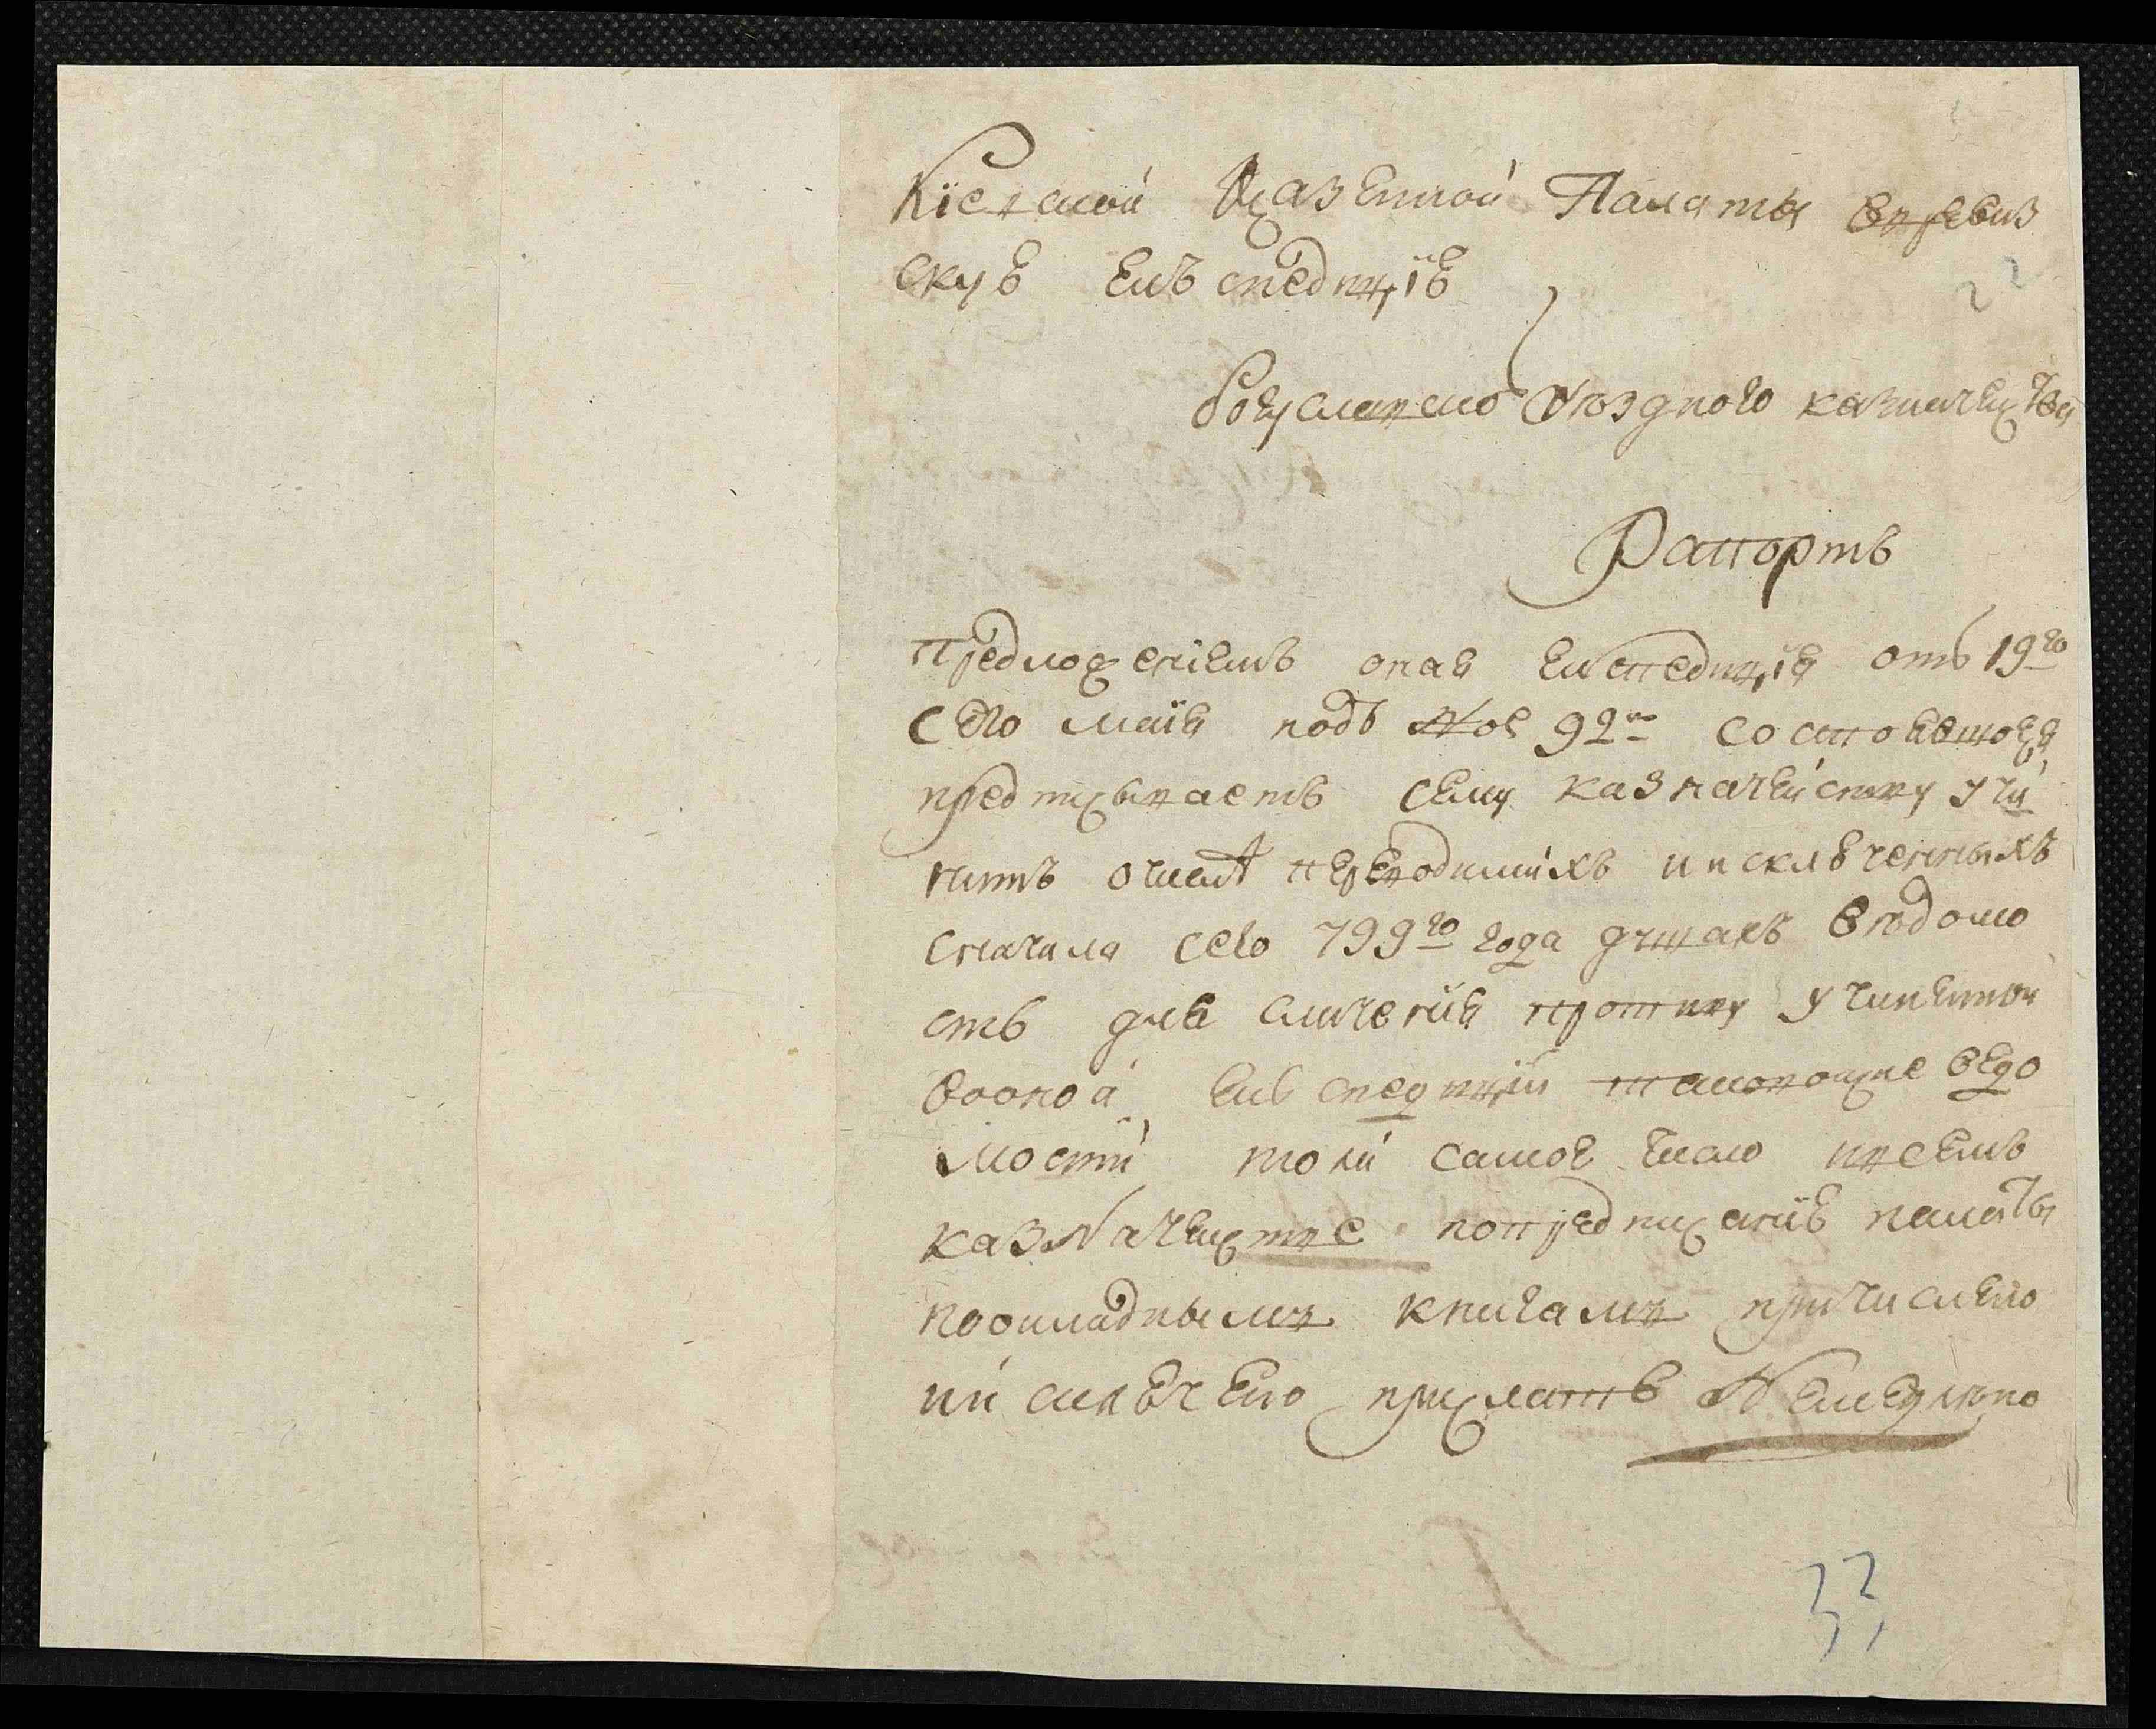 Кіевской Казенной Палаты вревиз
скую екъспедицію
22
богуславского Уѣздного казначейства
Рапортъ
предложеніемъ оная експедиція отъ 19го
сего маія подъ №ое 92м состоявшогся
предписываетъ сему казначейству учи
нитъ о переводимихъ иисключенныхъ
сначала сего 799го года душахъ вѣдомо
сть для сличенія противу учиненной
вооной екъспедиціи таковоиже ведо
мости толи самое число квсемъ
казначействе попредписанію палаты
поокладнымъ книгамъ причислено
ии сключено прислать Немедлѣно
33